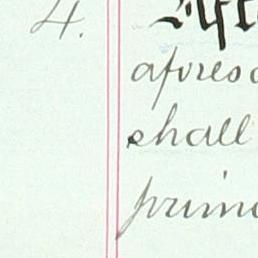 4. Afte
aforesa
shall
princ